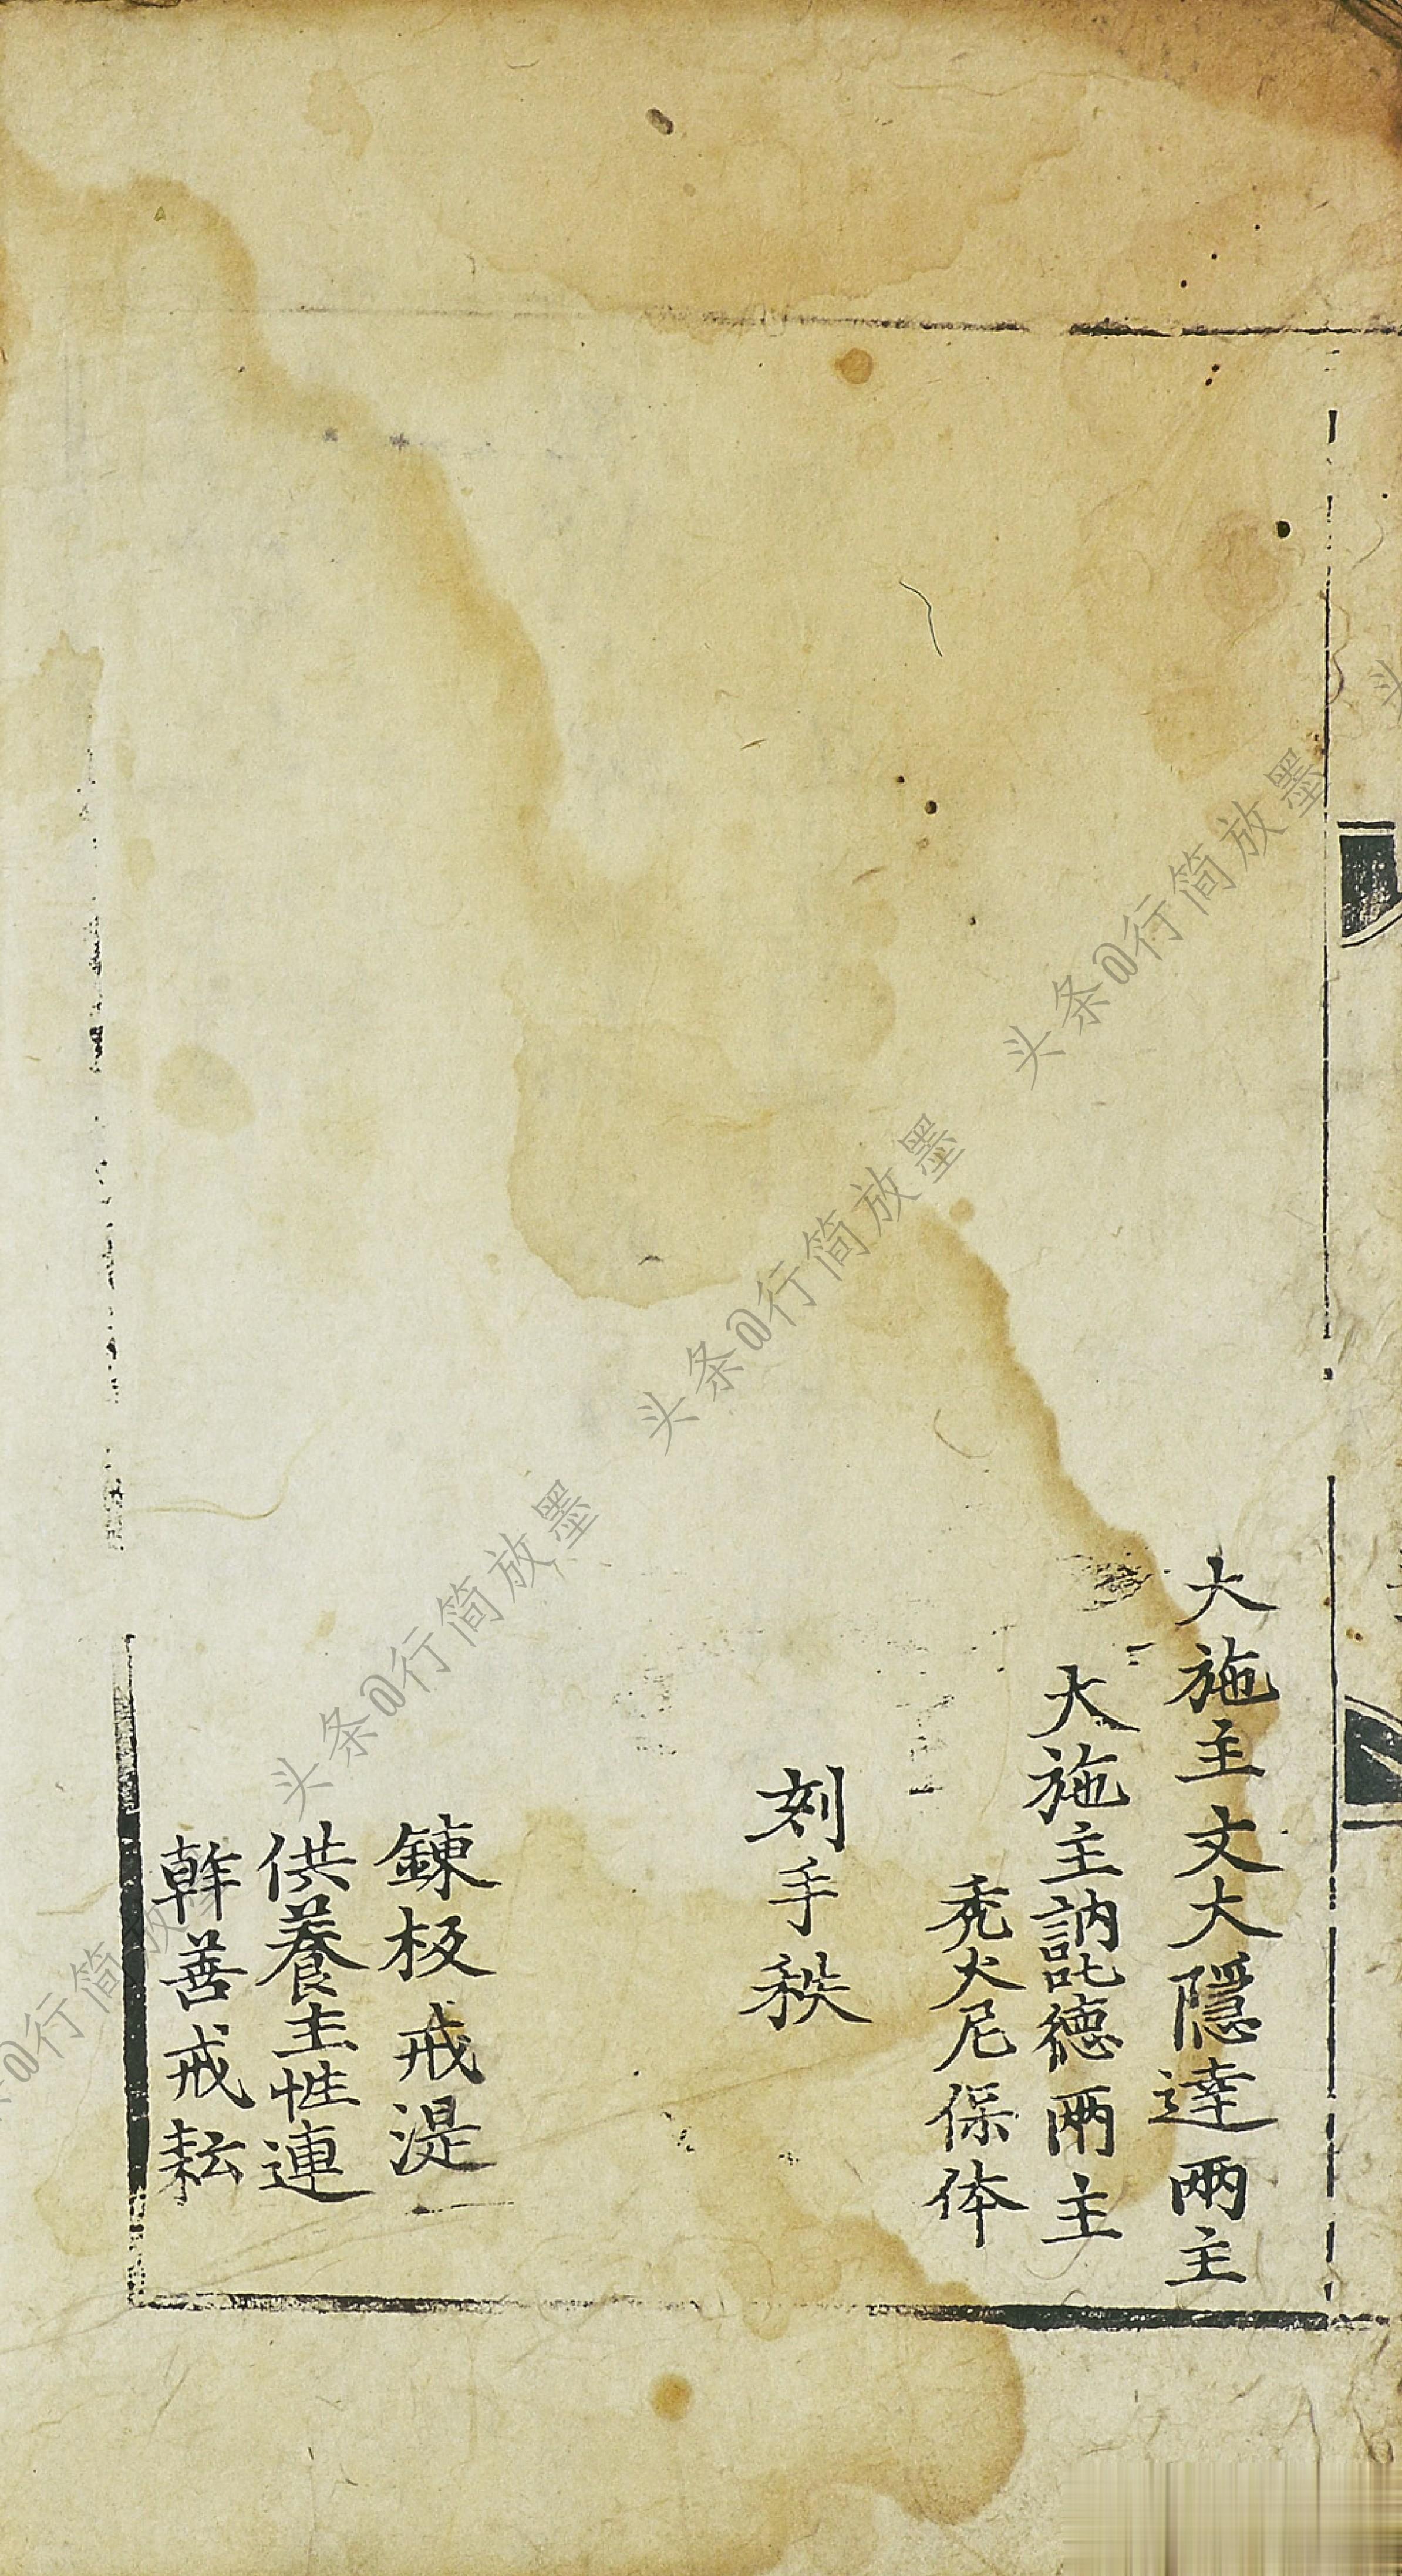 大施主文大隱達兩主
大施主訥叱德兩主
禿大尼保体
刻手秩
鍊板戒湜
供養主性連
幹善戒耘
头条@行简放墨
头条@行简放墨
头条@行简放墨